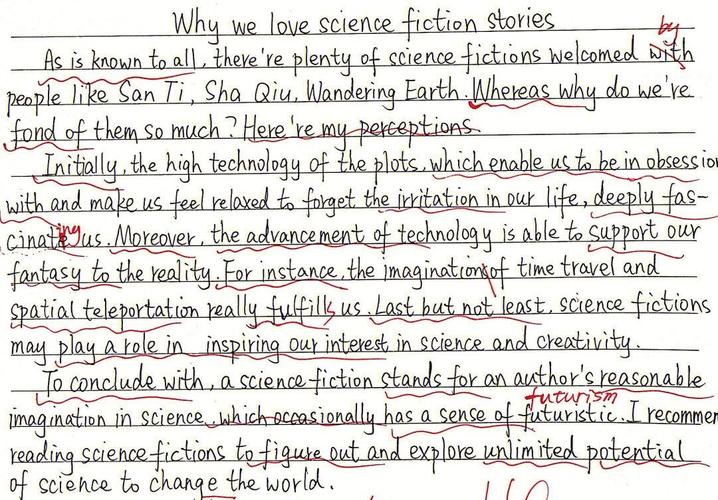 Why we love science fiction stories
by
As is known to all, there're plenty of science fictions welcomed with
people like San Ti, Sha Qiu, Wandering Earth. Whereas why do we're
fond of them so much? Here're my perceptions.
Initially, the high technology of the plots, which enable us to be in obsession
with and make us feel relaxed to forget the irritation in our life, deeply fas-
cinating us. Moreover, the advancement of technology is able to support our
fantasy to the reality. For instance, the imaginations of time travel and
spatial teleportation really fulfills us. Last but not least, science fictions
may play a role in inspiring our interest in science and creativity.
To conclude with, a science fiction stands for an author's reasonable
futurism
imagination in science, which occasionally has a sense of futuristic. I recommen
reading science fictions to figure out and explore unlimited potential
of science to change the world.